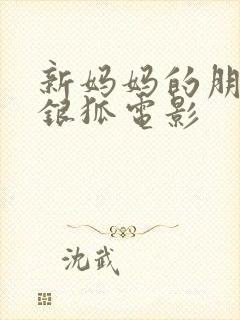 新妈妈的朋
银狐电影
沈武